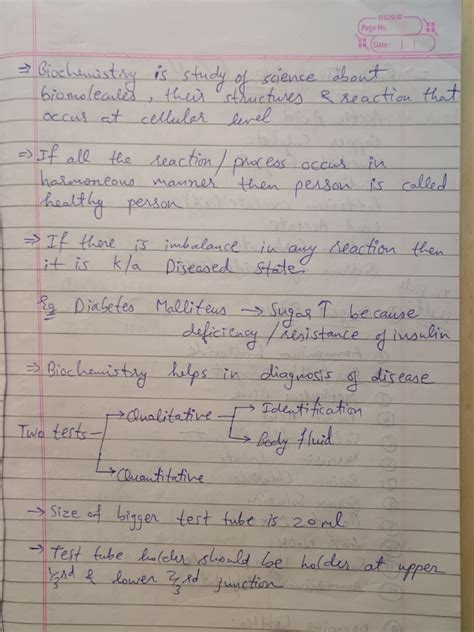 SOSE
Page No.
Date: | |
⇒ Biochemistry is study of science about
biomolecules, their structures & reaction that
occur at cellular level
⇒ If all the reaction/process occur in
harmoneous manner then person is called
healthy person
⇒ If there is imbalance in any reaction then
it is k/a Diseased State.
Eg Diabetes Malliteus → Sugar ↑ because
deficiency/resistance of insulin
⇒ Biochemistry helps in diagnosis of disease
→ Qualitative → Identification
Two tests → Body fluid
→ Quantitative
→ Size of bigger test tube is 20 ml
→ Test tube holder should be holder at upper
1/3rd & lower 2/3rd junction.